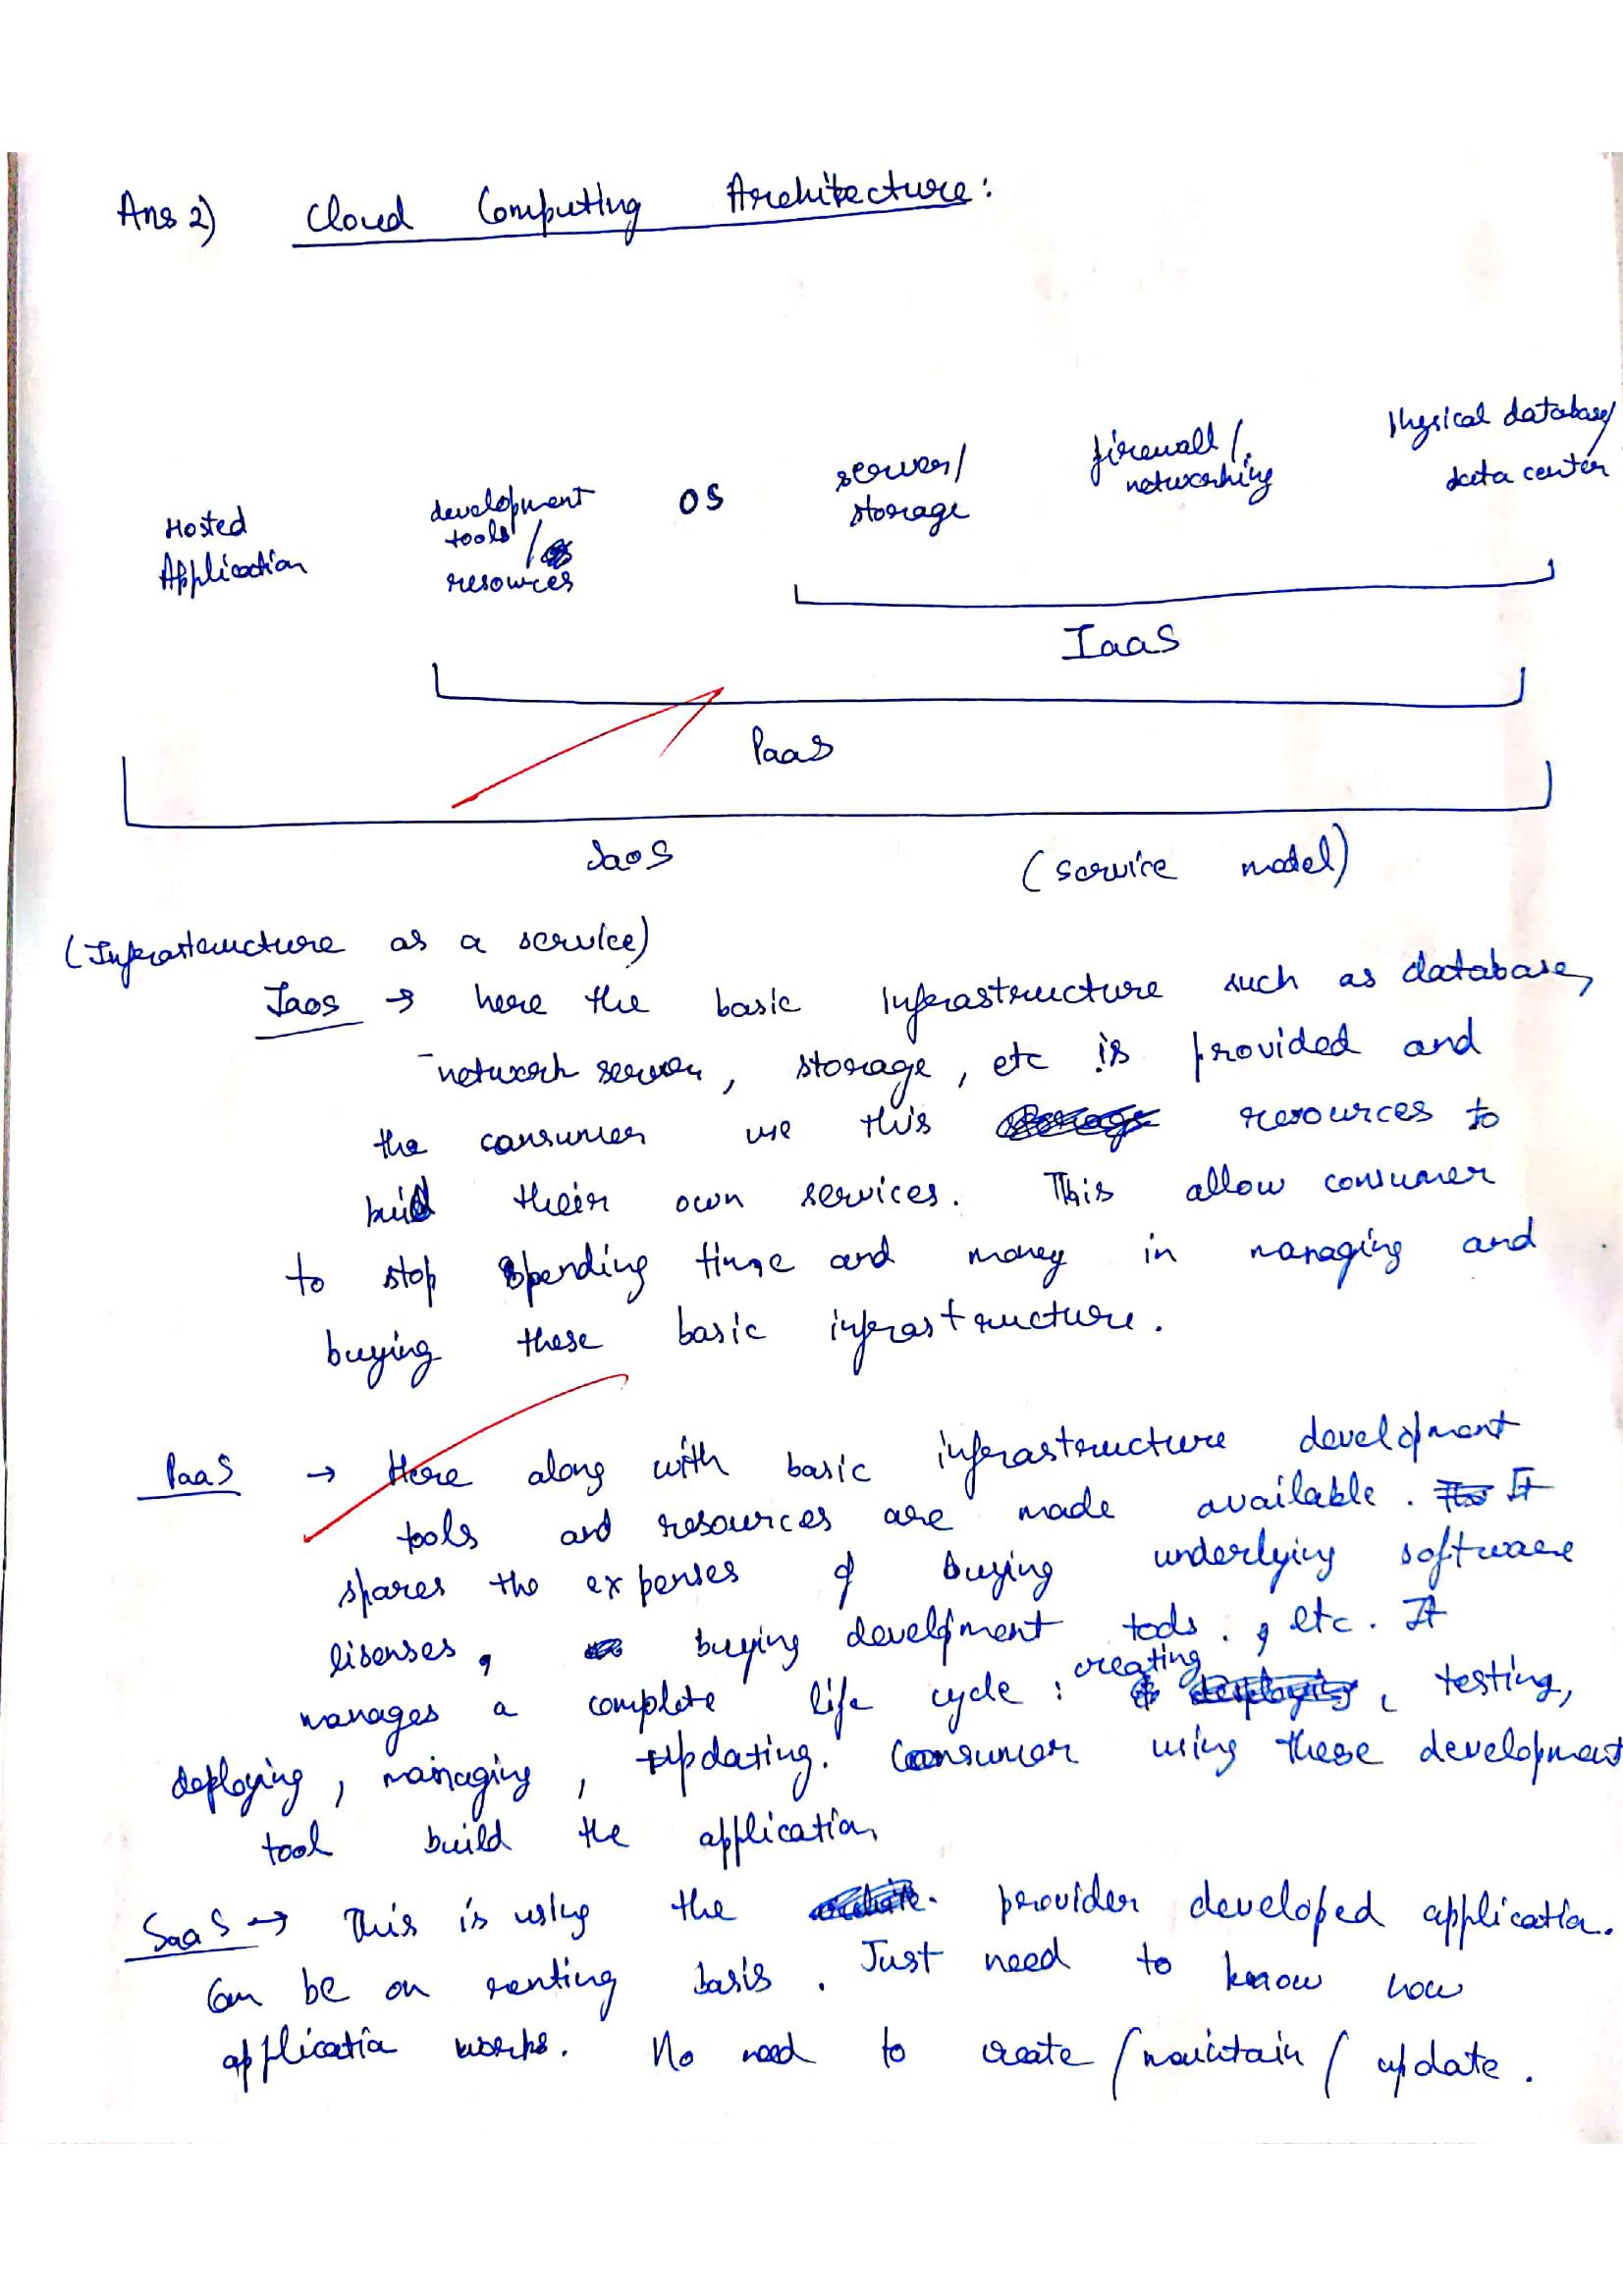 Ans 2) Cloud Computing Architecture:
Hosted Application
development tools / resources
OS
server/ storage
firewall/ networking
Physical database/ data center
IaaS
PaaS
SaaS (service model)
(Infrastructure as a service)
IaaS → here the basic infrastructure such as database,
network server, storage, etc is provided and
the consumer use this resources to
buid their own services. This allow consumer
to stop spending time and money in managing and
buying these basic infrastructure.
PaaS → Here along with basic infrastructure development
tools and resources are made available. It
spares the expenses of buying underlying software
lisenses, buying development tools, etc. It
manages a complete life cycle : creating, testing,
deploying, managing, updating. Consumer using these development
tool build the application
SaaS → This is using the provider developed application.
Can be on renting basis. Just need to know how
application works. No need to create / maintain / update.